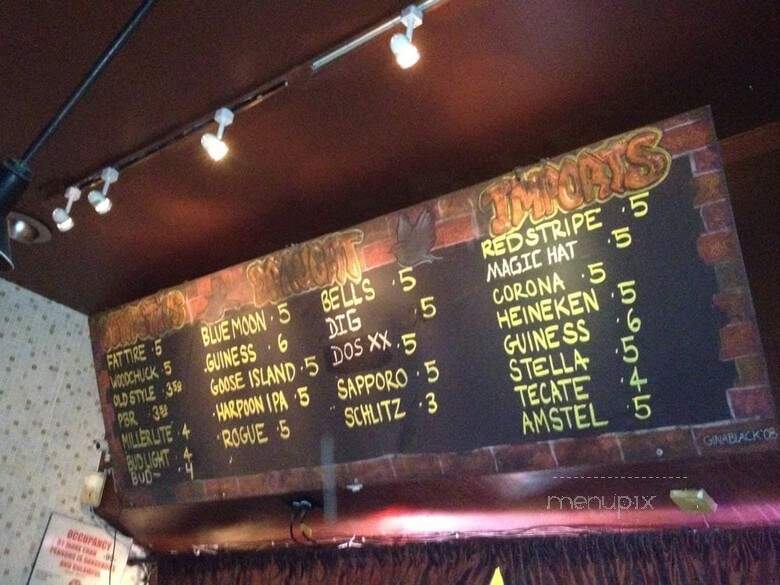 FAT TIRE · 5
WOODCHUCK · 5
OLD STYLE · 3.50
PBR · 3.50
MILLER LITE · 4
BUD LIGHT · 4
BUD · 4
DRAUGHT
BLUE MOON · 5
·GUINESS · 6
GOOSE ISLAND · 5
·HARPOON IPA · 5
·ROGUE · 5
BELLS · 5
DIG · 5
DOS XX · 5
SAPPORO · 5
SCHLITZ · 3
IMPORTS
RED STRIPE · 5
MAGIC HAT · 5
CORONA · 5
HEINEKEN · 5
GUINESS · 6
STELLA · 5
TECATE · 4
AMSTEL · 5
GINABLACK '08
menupix
OCCUPANCY
BY MORE THAN
PERSONS IS DANGEROUS
AND UNLAWFUL